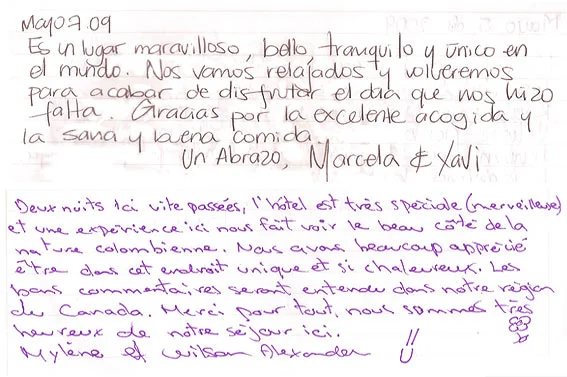 Mayo 7.09
Es un lugar maravilloso, bello, tranquilo y único en
el mundo. Nos vamos relajados y volveremos
para acabar de disfrutar el día que nos hizo
falta. Gracias por la excelente acogida y
la sana y buena comida.
Un Abrazo, Marcela & Xavi
Deux nuits ici vite passées, l'hôtel est très spéciale (merveilleuse)
et une expérience ici nous fait voir le beau côté de la
nature colombienne. Nous avons beaucoup apprécié
être dans cet endroit unique et si chaleureux. Les
bons commentaires seront entendu dans notre région
du Canada. Merci pour tout, nous sommes très
heureux de notre séjour ici.
Mylène et Wilson Alexander